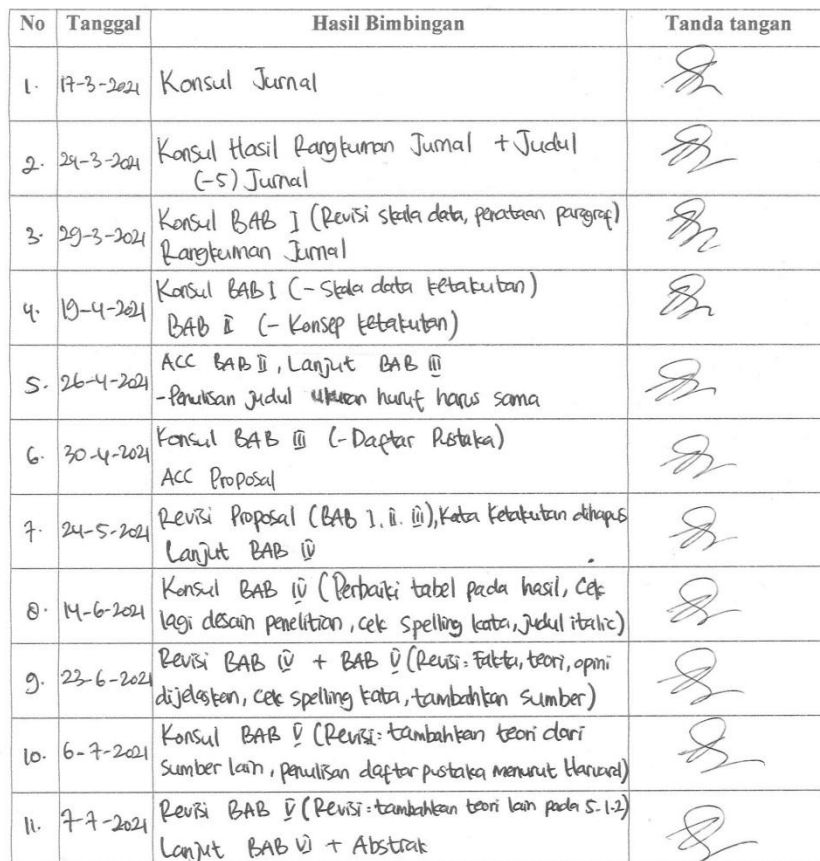 No Tanggal Hasil Bimbingan Tanda tangan
1. 17-3-2021 Konsul Jurnal
2. 24-3-2021 Konsul Hasil Rangkuman Jurnal + Judul
(-5) Jurnal
3. 29-3-2021 Konsul BAB I (Revisi skala data, penataan paragraf)
Rangkuman Jurnal
4. 19-4-2021 Konsul BAB I (- Skala data ketakutan)
BAB II (- Konsep ketakutan)
5. 26-4-2021 ACC BAB II, Lanjut BAB III
- Penulisan judul ukuran huruf harus sama
6. 30-4-2021 Konsul BAB III (- Daftar Pustaka)
ACC Proposal
7. 24-5-2021 Revisi Proposal (BAB I, II. III), Kata Ketakutan dihapus
Lanjut BAB IV
8. 14-6-2021 Konsul BAB IV (Perbaiki tabel pada hasil, Cek
lagi desain penelitian, cek spelling kata, judul italic)
9. 23-6-2021 Revisi BAB IV + BAB V (Revisi: Fakta, teori, opini
dijelaskan, cek spelling kata, tambahkan sumber)
10. 6-7-2021 Konsul BAB V (Revisi: tambahkan teori dari
sumber lain, penulisan daftar pustaka menurut Harvard)
11. 7-7-2021 Revisi BAB V (Revisi: tambahkan teori lain pada 5.1.2)
Lanjut BAB VI + Abstrak